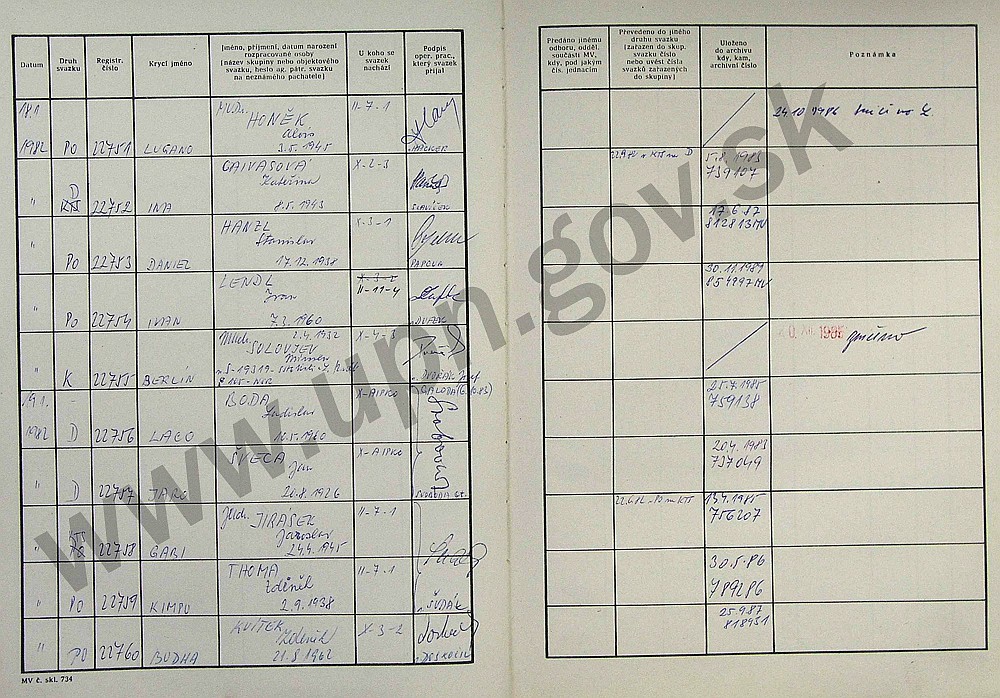 Datum
Druh svazku
Registr. číslo
Krycí jméno
Jméno, příjmení, datum narození
rozpracované osoby
(název skupiny nebo objektového
svazku, heslo ag. pátr. svazku
na neznámého pachatele)
U koho se svazek nachází
Podpis oper. prac., který svazek přijal
Předáno jinému odboru, odděl. součásti MV, kdy, pod jakým čís. jednacím
Převedeno do jiného druhu svazku (zařazen do skup. svazku číslo nebo uvést čísla svazků zařazených do skupiny)
Uloženo do archivu kdy, kam, archivní číslo
Poznámka
18.1. 1982 PO 22751 LUGANO
MUDr. HONĚK
Alois
3.5.1945
II-7-1
HACKER
24.10.1986
" D KTS 22752 INA
GAIVASOVÁ
Kateřina
8.5.1943
X-2-3
SLAVÍČEK
5.8.1983
739107
" PO 22753 DANIEL
HANZL
Stanislav
17.12.1938
X-3-1
17.6.87
812813MV
" PO 22754 IVAN
LENDL
Ivan
7.3.1960
X-3-2
II-11-4
30.11.1989
854997MV
" K 22755 BERLÍN
2.4.1932
SOLOVJEV
X-4-3
DVOŘÁK Josef
1985 zničeno
19.1. 1982 D 22756 LAGO
BODA
Ladislav
10.5.1960
X-AIPKO
25.7.1985
759138
" D 22757 JARO
ŠVECA
Jan
20.8.1926
X-AIPKO
SVOBODA
20.4.1983
737049
" KTS 22758 GABI
JUDr. JIRÁSEK
Jaroslav
24.4.1945
II-7-1
13.4.1985
756207
" PO 22759 KIMPU
THOMA
Zdeněk
2.9.1938
II-7-1
ŠUDÁK
30.5.86
789286
" PO 22760 BUDHA
KVÍTEK
Zdeněk
21.8.1962
X-3-2
DOSKOČIL
25.9.87
818951
MV č. skl. 734
www.upn.gov.sk